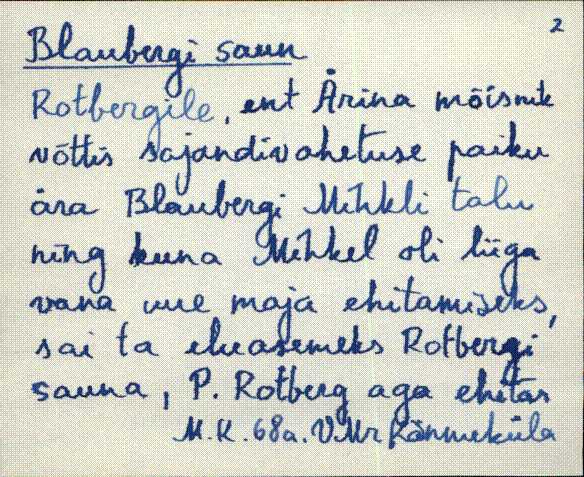 2
Blaubergi saun
Rotbergile, ent Ärina mõisnik
võttis sajandivahetuse paiku
ära Blaubergi Mihkli talu
ning kuna Mihkel oli liiga
vana uue maja ehitamiseks,
sai ta eluasemeks Rotbergi
sauna, P. Rotberg aga ehitas
M.K. 68a. VMr Ränmeküla